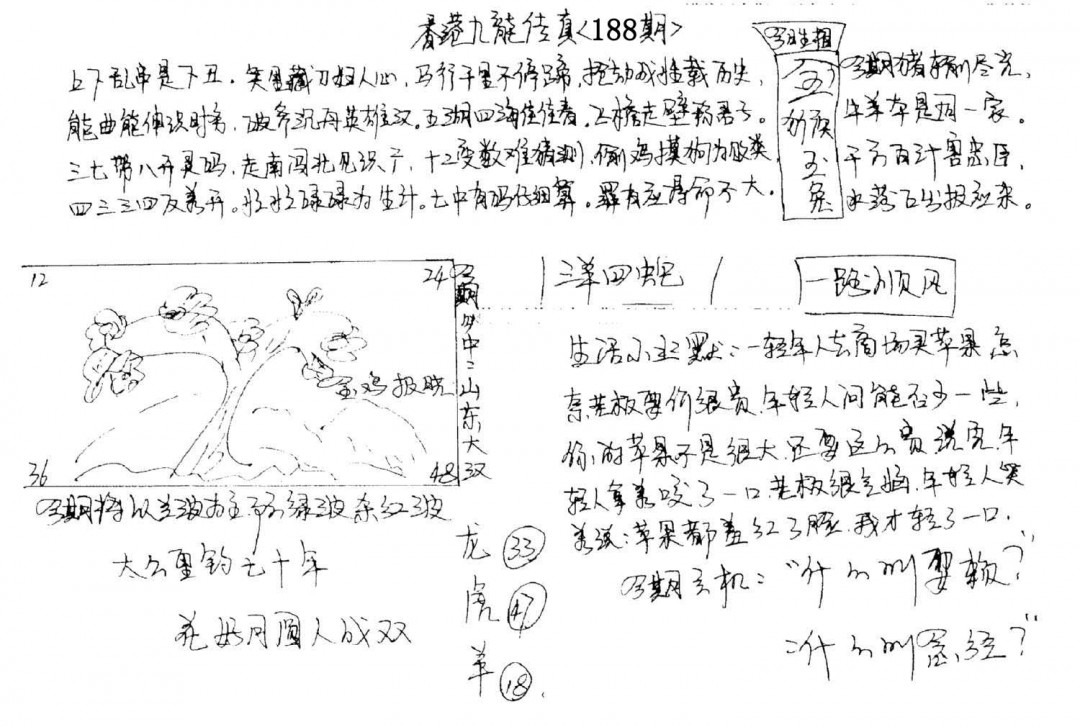 香港九龙传真<188期>
今期生相
上下乱串是下丑.笑里藏刀妇人心,马行千里不停蹄,
能曲能伸识时务,破斧沉舟英雄汉.五湖四海佳佳春.飞檐走壁
三七带八开灵码,走南闯北见识广,十二变数难猜测,偷鸡摸狗为败类.
四三三四反美开。忙忙碌碌为生计.七中有码仔细算.罪有应得命不大.
玉
兔
今期猪
牛羊本是同一家.
千方百计害忠臣
水落石出报应来。
12
24
36
48
金鸡报晓
今期必中:山东大汉
三羊四蛇
一路顺风
生活小幽默:一轻年人去商场买苹果,怎
奈老板要价很贵.年轻人问能否少一些,
你的苹果不是很大.还要这么贵,说完年
轻人拿着咬了一口.老板很气恼,年轻人笑
着说:苹果都羞红了脸,我才轻了一口.
今期玄机:"什么叫耍赖?"
:什么叫念经?"
今期将以兰波为主 防绿波杀红波
太公垂钓七十年
花好月圆人成双
龙 33
虎 47
羊 18.